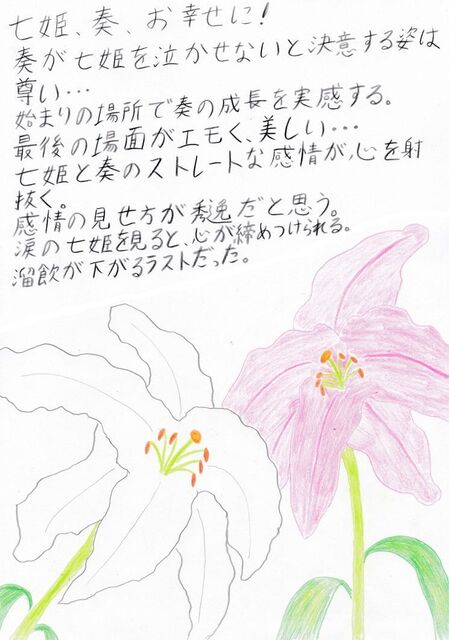 七姫、奏、お幸せに！
奏が七姫を泣かせないと決意する姿は
尊い…
始まりの場所で奏の成長を実感する。
最後の場面がエモく、美しい…
七姫と奏のストレートな感情が心を射
抜く。
感情の見せ方が秀逸だと思う。
涙の七姫を見ると、心が締めつけられる。
溜飲が下がるラストだった。